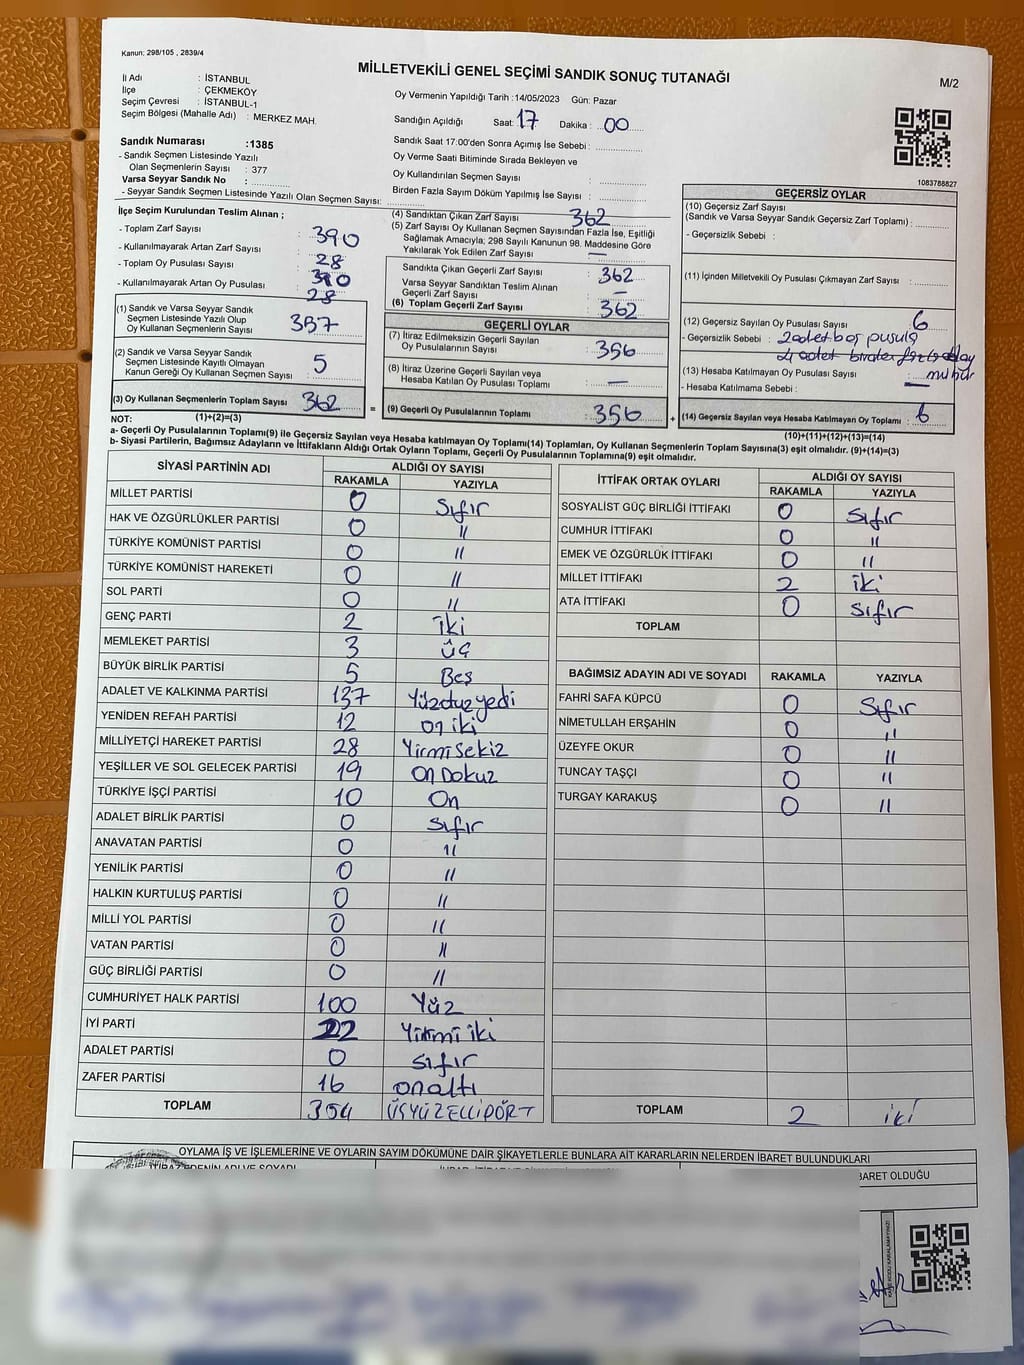 Kanun: 298/105 , 2839/4
MİLLETVEKİLİ GENEL SEÇİMİ SANDIK SONUÇ TUTANAĞI
M/2
İl Adı : İSTANBUL
İlçe : ÇEKMEKÖY
Seçim Çevresi : İSTANBUL-1
Seçim Bölgesi (Mahalle Adı) : MERKEZ MAH.
Oy Vermenin Yapıldığı Tarih :14/05/2023 Gün: Pazar
Sandığın Açıldığı Saat: 17 Dakika : 00
Sandık Numarası :1385
- Sandık Seçmen Listesinde Yazılı
Olan Seçmenlerin Sayısı : 377
Varsa Seyyar Sandık No :
- Seyyar Sandık Seçmen Listesinde Yazılı Olan Seçmen Sayısı:
Sandık Saat 17:00'den Sonra Açımış İse Sebebi :
Oy Verme Saati Bitiminde Sırada Bekleyen ve
Oy Kullandırılan Seçmen Sayısı :
Birden Fazla Sayım Döküm Yapılmış İse Sayısı :
1083788827
İlçe Seçim Kurulundan Teslim Alınan ;
- Toplam Zarf Sayısı : 390
- Kullanılmayarak Artan Zarf Sayısı : 28
- Toplam Oy Pusulası Sayısı : 390
- Kullanılmayarak Artan Oy Pusulası : 28
(1) Sandık ve Varsa Seyyar Sandık
Seçmen Listesinde Yazılı Olup
Oy Kullanan Seçmenlerin Sayısı : 357
(2) Sandık ve Varsa Seyyar Sandık
Seçmen Listesinde Kayıtlı Olmayan
Kanun Gereği Oy Kullanan Seçmen Sayısı : 5
(3) Oy Kullanan Seçmenlerin Toplam Sayısı : 362
(1)+(2)=(3)
(4) Sandıktan Çıkan Zarf Sayısı : 362
(5) Zarf Sayısı Oy Kullanan Seçmen Sayısından Fazla İse, Eşitliği
Sağlamak Amacıyla; 298 Sayılı Kanunun 98. Maddesine Göre
Yakılarak Yok Edilen Zarf Sayısı : —
Sandıkta Çıkan Geçerli Zarf Sayısı : 362
Varsa Seyyar Sandıktan Teslim Alınan
Geçerli Zarf Sayısı : —
(6) Toplam Geçerli Zarf Sayısı : 362
GEÇERLİ OYLAR
(7) İtiraz Edilmeksizin Geçerli Sayılan
Oy Pusulalarının Sayısı : 356
(8) İtiraz Üzerine Geçerli Sayılan veya
Hesaba Katılan Oy Pusulası Toplamı : —
= (9) Geçerli Oy Pusulalarının Toplamı : 356 +
GEÇERSİZ OYLAR
(10) Geçersiz Zarf Sayısı
(Sandık ve Varsa Seyyar Sandık Geçersiz Zarf Toplamı) :
- Geçersizlik Sebebi :
(11) İçinden Milletvekili Oy Pusulası Çıkmayan Zarf Sayısı :
(12) Geçersiz Sayılan Oy Pusulası Sayısı : 6
- Geçersizlik Sebebi : 2 adet boş pusula
4 adet birden fazla
mühür
(13) Hesaba Katılmayan Oy Pusulası Sayısı : —
- Hesaba Katılmama Sebebi :
(14) Geçersiz Sayılan veya Hesaba Katılmayan Oy Toplamı : 6
(10)+(11)+(12)+(13)=(14)
NOT:
a- Geçerli Oy Pusulalarının Toplamı(9) ile Geçersiz Sayılan veya Hesaba katılmayan Oy Toplamı(14) Toplamları, Oy Kullanan Seçmenlerin Toplam Sayısına(3) eşit olmalıdır. (9)+(14)=(3)
b- Siyasi Partilerin, Bağımsız Adayların ve İttifakların Aldığı Ortak Oyların Toplamı, Geçerli Oy Pusulalarının Toplamına(9) eşit olmalıdır.
SİYASİ PARTİNİN ADI ALDIĞI OY SAYISI
RAKAMLA YAZIYLA
MİLLET PARTİSİ 0 Sıfır
HAK VE ÖZGÜRLÜKLER PARTİSİ 0 "
TÜRKİYE KOMÜNİST PARTİSİ 0 "
TÜRKİYE KOMÜNİST HAREKETİ 0 "
SOL PARTİ 0 "
GENÇ PARTİ 2 İki
MEMLEKET PARTİSİ 3 üç
BÜYÜK BİRLİK PARTİSİ 5 Beş
ADALET VE KALKINMA PARTİSİ 137 Yüzotuzyedi
YENİDEN REFAH PARTİSİ 12 on iki
MİLLİYETÇİ HAREKET PARTİSİ 28 Yirmi sekiz
YEŞİLLER VE SOL GELECEK PARTİSİ 19 On Dokuz
TÜRKİYE İŞÇİ PARTİSİ 10 On
ADALET BİRLİK PARTİSİ 0 Sıfır
ANAVATAN PARTİSİ 0 "
YENİLİK PARTİSİ 0 "
HALKIN KURTULUŞ PARTİSİ 0 "
MİLLİ YOL PARTİSİ 0 "
VATAN PARTİSİ 0 "
GÜÇ BİRLİĞİ PARTİSİ 0 "
CUMHURİYET HALK PARTİSİ 100 Yüz
İYİ PARTİ 22 Yirmi iki
ADALET PARTİSİ 0 sıfır
ZAFER PARTİSİ 16 onaltı
TOPLAM 354 ÜÇYÜZELLİDÖRT
İTTİFAK ORTAK OYLARI ALDIĞI OY SAYISI
RAKAMLA YAZIYLA
SOSYALİST GÜÇ BİRLİĞİ İTTİFAKI 0 Sıfır
CUMHUR İTTİFAKI 0 "
EMEK VE ÖZGÜRLÜK İTTİFAKI 0 "
MİLLET İTTİFAKI 2 iki
ATA İTTİFAKI 0 sıfır
TOPLAM
BAĞIMSIZ ADAYIN ADI VE SOYADI RAKAMLA YAZIYLA
FAHRİ SAFA KÜPCÜ 0 Sıfır
NİMETULLAH ERŞAHİN 0 "
ÜZEYFE OKUR 0 "
TUNCAY TAŞÇI 0 "
TURGAY KARAKUŞ 0 "
TOPLAM 2 iki
OYLAMA İŞ VE İŞLEMLERİNE VE OYLARIN SAYIM DÖKÜMÜNE DAİR ŞİKAYETLERLE BUNLARA AİT KARARLARIN NELERDEN İBARET BULUNDUKLARI
BARET OLDUĞU